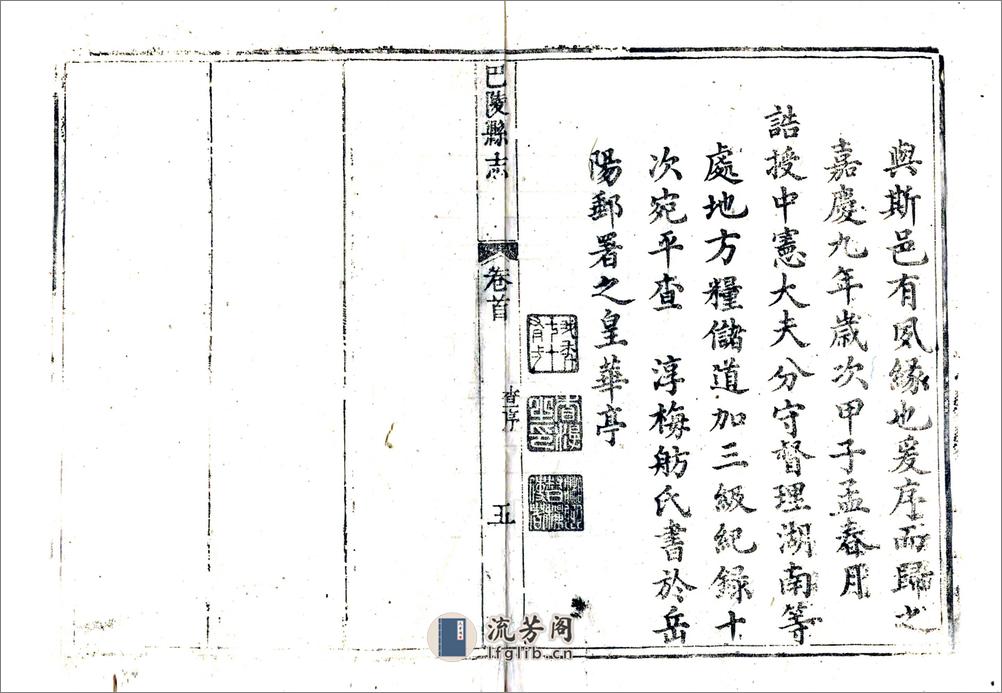 與斯邑有夙緣也爰序而歸之
嘉慶九年歲次甲子孟春月
誥授中憲大夫分守督理湖南等
處地方糧儲道加三級紀錄十
次宛平查 淳梅舫氏書於岳
陽郵署之皇華亭
巴陵縣志
卷首
查序
五
流芳阁
lfglib.cn